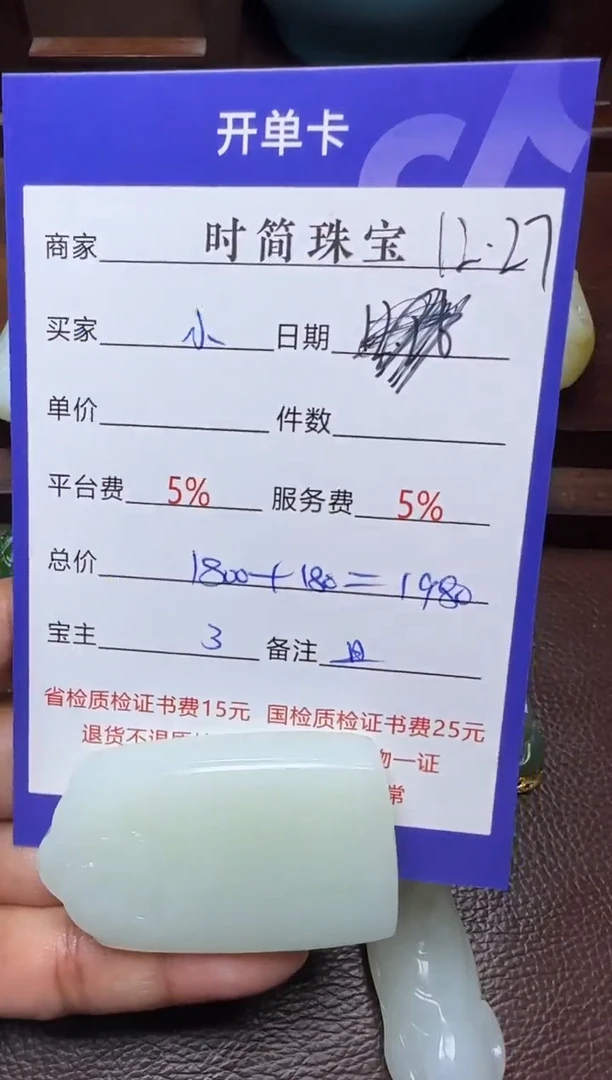 开单卡
商家 时简珠宝 12.27
买家 小 日期
单价 件数
平台费 5% 服务费 5%
总价 1800+180=1980
宝主 3 备注
省检质检证书费15元 国检质检证书费25元
退货不退 一证
常